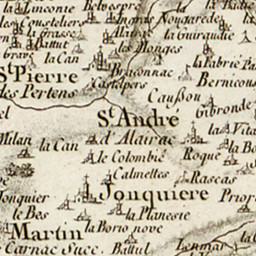 la Linconte Belvespre la Batie
les Cousteliers Ingras Nougarede
la Grasse Alairac la Guiraudie
Battut les Monges
la Can la Fabrie
St Pierre Braconnac Bernicou
des Pertens Castelpers
Caußou
Gibronde
St André la Vita
Milan la Can d'Alairac la Bo
le Colombié Roque
Calmettes Rascas
Jonquier Jonquiere Prior
le Bes la Planeste
Martin la Borio nove
Carnac Succ. Battut Lenmar